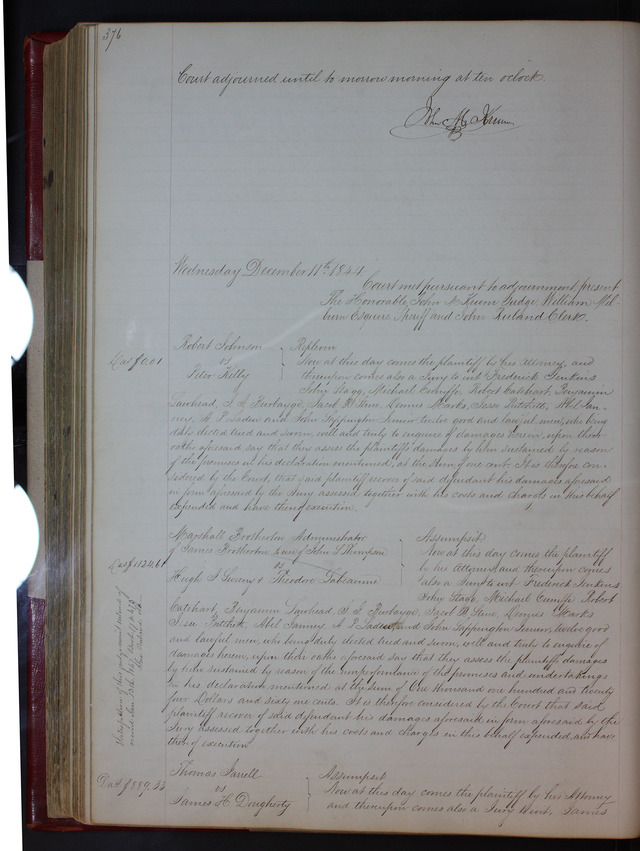 376
Court adjourned until to morrow morning at ten oclock.
John M. Krum
Wednesday December 11th 1844
Court met pursuant to adjournment, present
The Honorable John M Krum Judge, William Mil-
burn Esquire Sheriff and John Ruland Clerk.
Robert Johnson
vs
Peter Kelly
Replevin
Now at this day comes the plaintiff by his attorney, and
thereupon comes also a Jury to wit Frederick Jenkins
John Stagg, Michael Cunliffe, Robert Cathcart, Benjamin
Lawhead, Jacob R Stine, Dennis Marks, Jesse
and John Toppington Senior twelve good and lawful men, who being
duly elected tried and sworn, well and truly to enquire of damages herein, upon their
oaths aforesaid say that they assess the plaintiffs damages by him sustained by reason
of the premises in his declaration mentioned, at the Sum of one cent. It is therefore con-
sidered by the Court, that said plaintiff recover of said defendant his damages aforesaid
in form aforesaid by the Jury assessed together with his costs and charges in this behalf
expended and have thereof execution.
Marshall Brotherton Administrator
of James Brotherton
vs
Hugh & Theodore
Assumpsit
Now at this day comes the plaintiff
by his Attorney and thereupon comes
also a Jury to wit Frederick Jenkins
John Stagg, Michael Cunliffe Robert
Cathcart, Benjamin Lawhead, Jacob R Stine, Dennis Marks
Abel and John Toppington Senior, twelve good
and lawful men, who being duly elected tried and sworn, well and truly to enquire of
damages herein, upon their oaths aforesaid say that they assess the plaintiffs damages
by him sustained by reason of the nonperformance of the promises and undertakings
in his declaration mentioned at the Sum of One thousand one hundred and twenty
four Dollars and sixty one cents. It is therefore considered by the Court that said
plaintiff recover of said defendant his damages aforesaid in form aforesaid by the
Jury assessed together with his costs and charges in this behalf expended, and have
thereof execution
Dam $1124.61
Thomas
vs
James H. Dougherty
Assumpsit
Now at this day comes the plaintiff by his Attorney
and thereupon comes also a Jury to wit, James